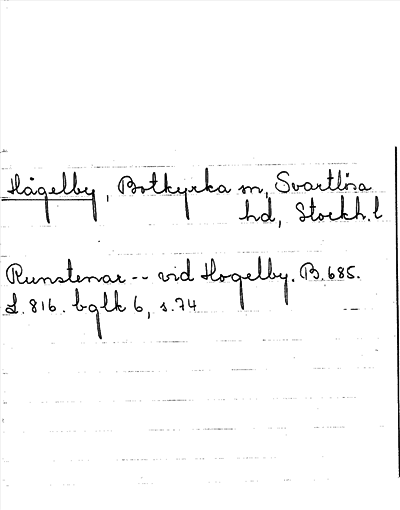 Hågelby, Botkyrka sn, Svartlösa
hd, Stockh.l
Runstenar -- vid Hogelby. B. 685.
L. 816. bglk 6, s. 74